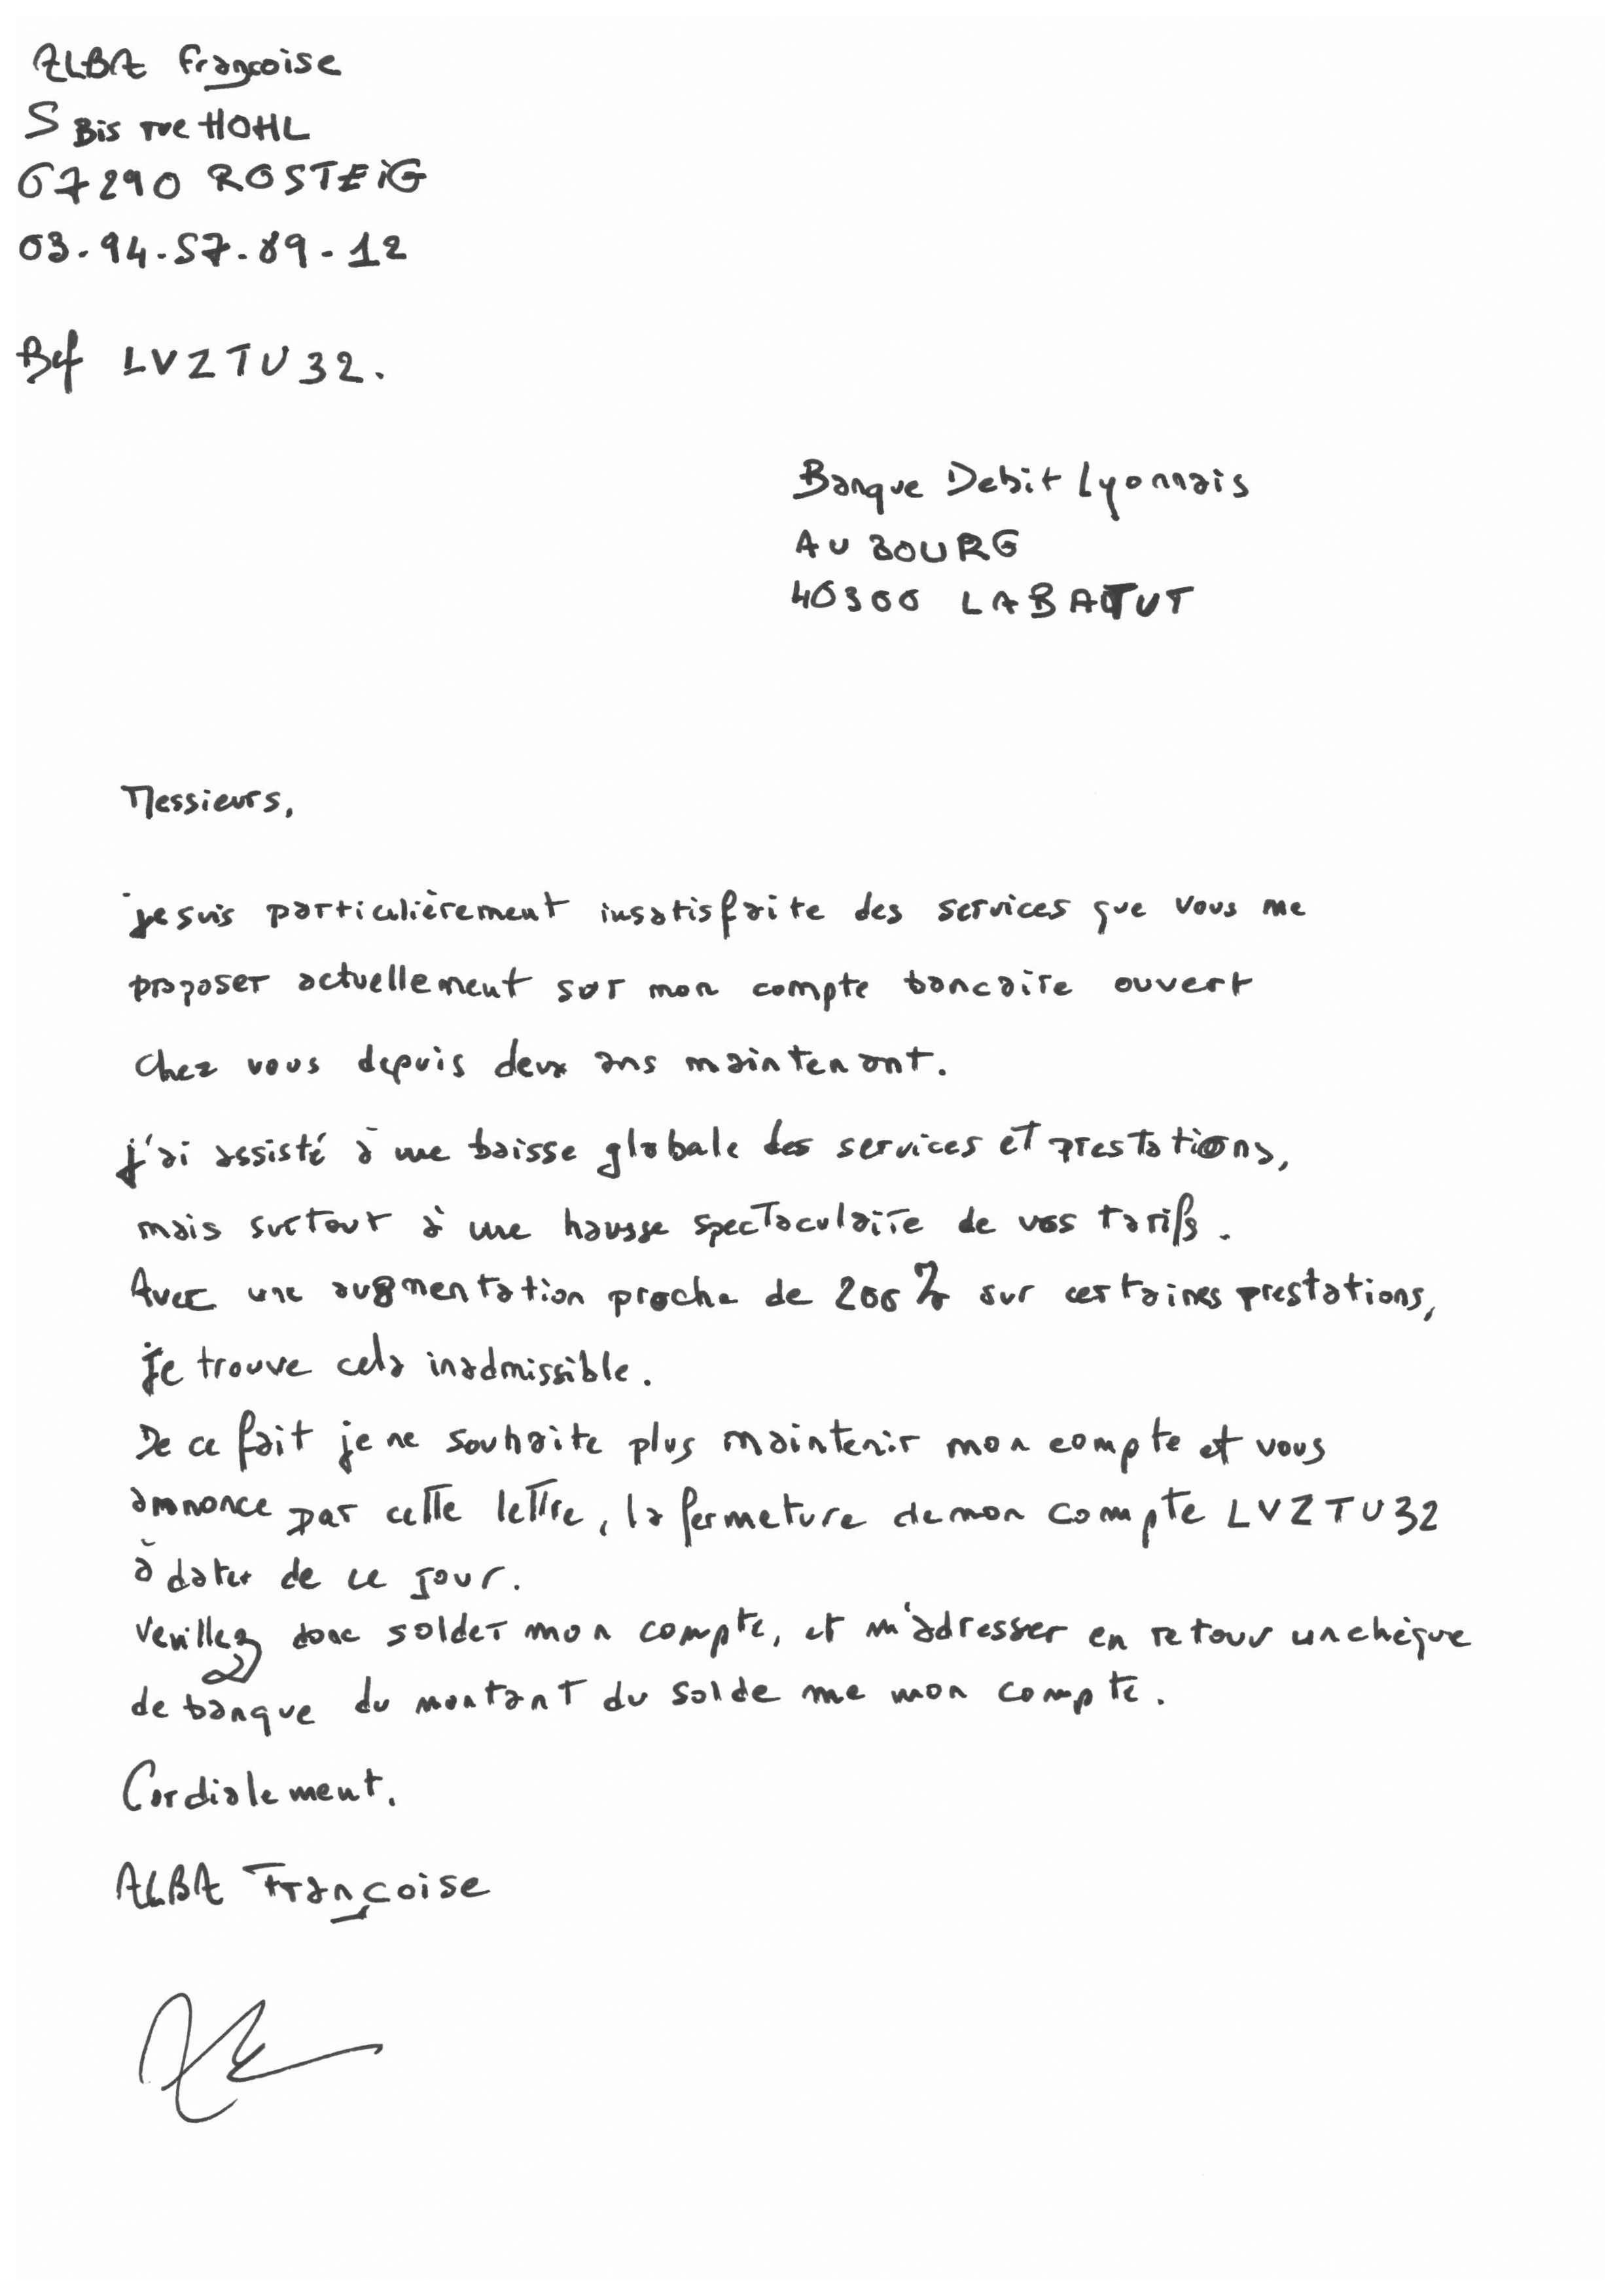 ALBA Françoise
5 Bis rue HOHL
67290 ROSTEIG
03.94.57.89.12
Ref LVZTU32.
Banque Debit Lyonnais
AU BOURG
40300 LABATUT
Messieurs,
je suis particulièrement insatisfaite des services que vous me
proposer actuellement sur mon compte bancaire ouvert
chez vous depuis deux ans maintenant.
j'ai assisté à une baisse globale des services et prestations,
mais surtout à une hausse spectaculaire de vos tarifs.
Avec une augmentation proche de 200% sur certaines prestations,
je trouve cela inadmissible.
De ce fait je ne souhaite plus maintenir mon compte et vous
annonce par cette lettre, la fermeture de mon compte LVZTU32
à dater de ce jour.
Veuillez donc solder mon compte, et m'adresser en retour un chèque
de banque du montant du solde me mon compte.
Cordialement.
ALBA Françoise